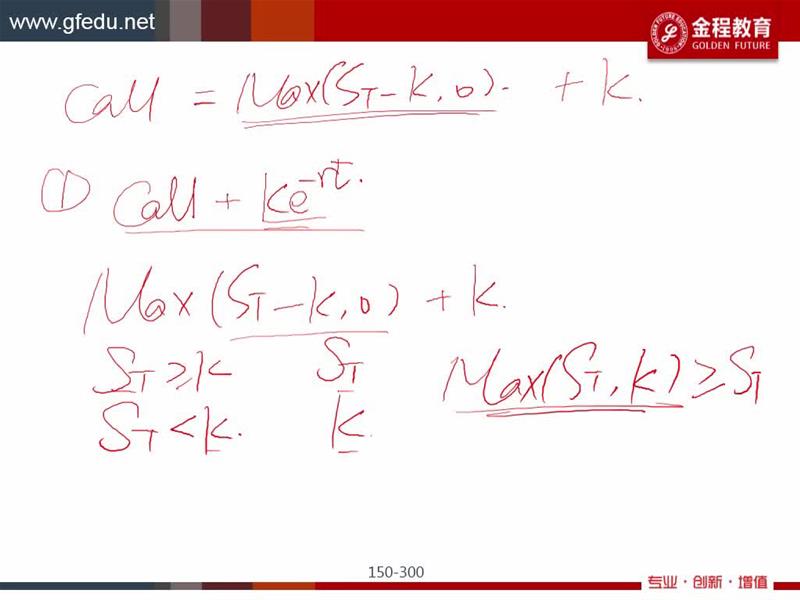 www.gfedu.net
金程教育
GOLDEN FUTURE
Call = Max(S_T - K, 0). + K.
① Call + Ke^{-rt}.
Max(S_T - K, 0) + K.
S_T ≥ K S_T Max(S_T, K) ≥ S_T
S_T < K. K.
150-300
专业·创新·增值